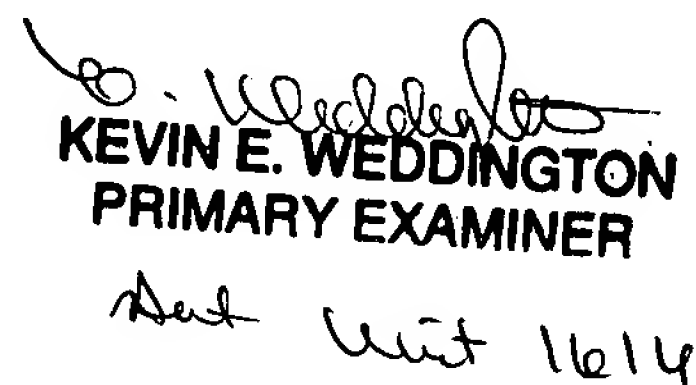 E. Weddington
KEVIN E. WEDDINGTON
PRIMARY EXAMINER
Art Unit 1614